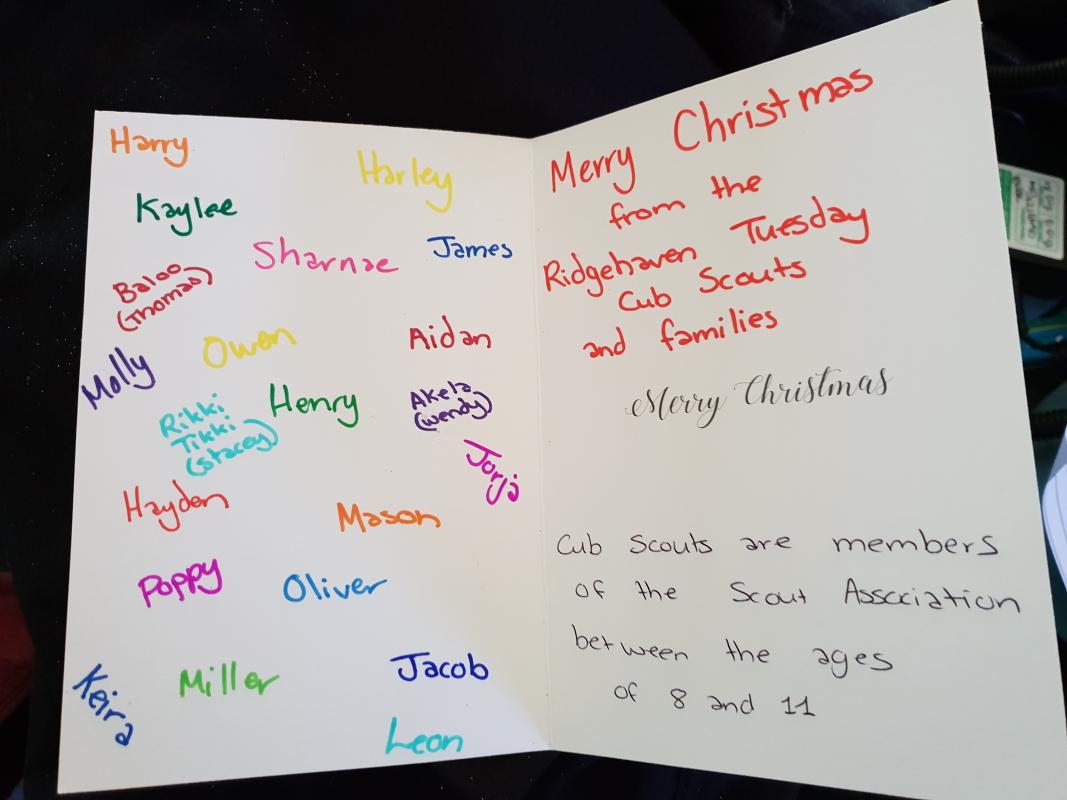 Harry
Harley
Kaylee
Sharnae
James
Baloo
(Thomas)
Owen
Aidan
Molly
Rikki
Tikki
(Stacey)
Henry
Akela
(Wendy)
Jorja
Hayden
Mason
Poppy
Oliver
Keira
Miller
Jacob
Leon
Merry Christmas
from the
Ridgehaven Tuesday
Cub Scouts
and families
Merry Christmas
Cub Scouts are members
of the Scout Association
between the ages
of 8 and 11